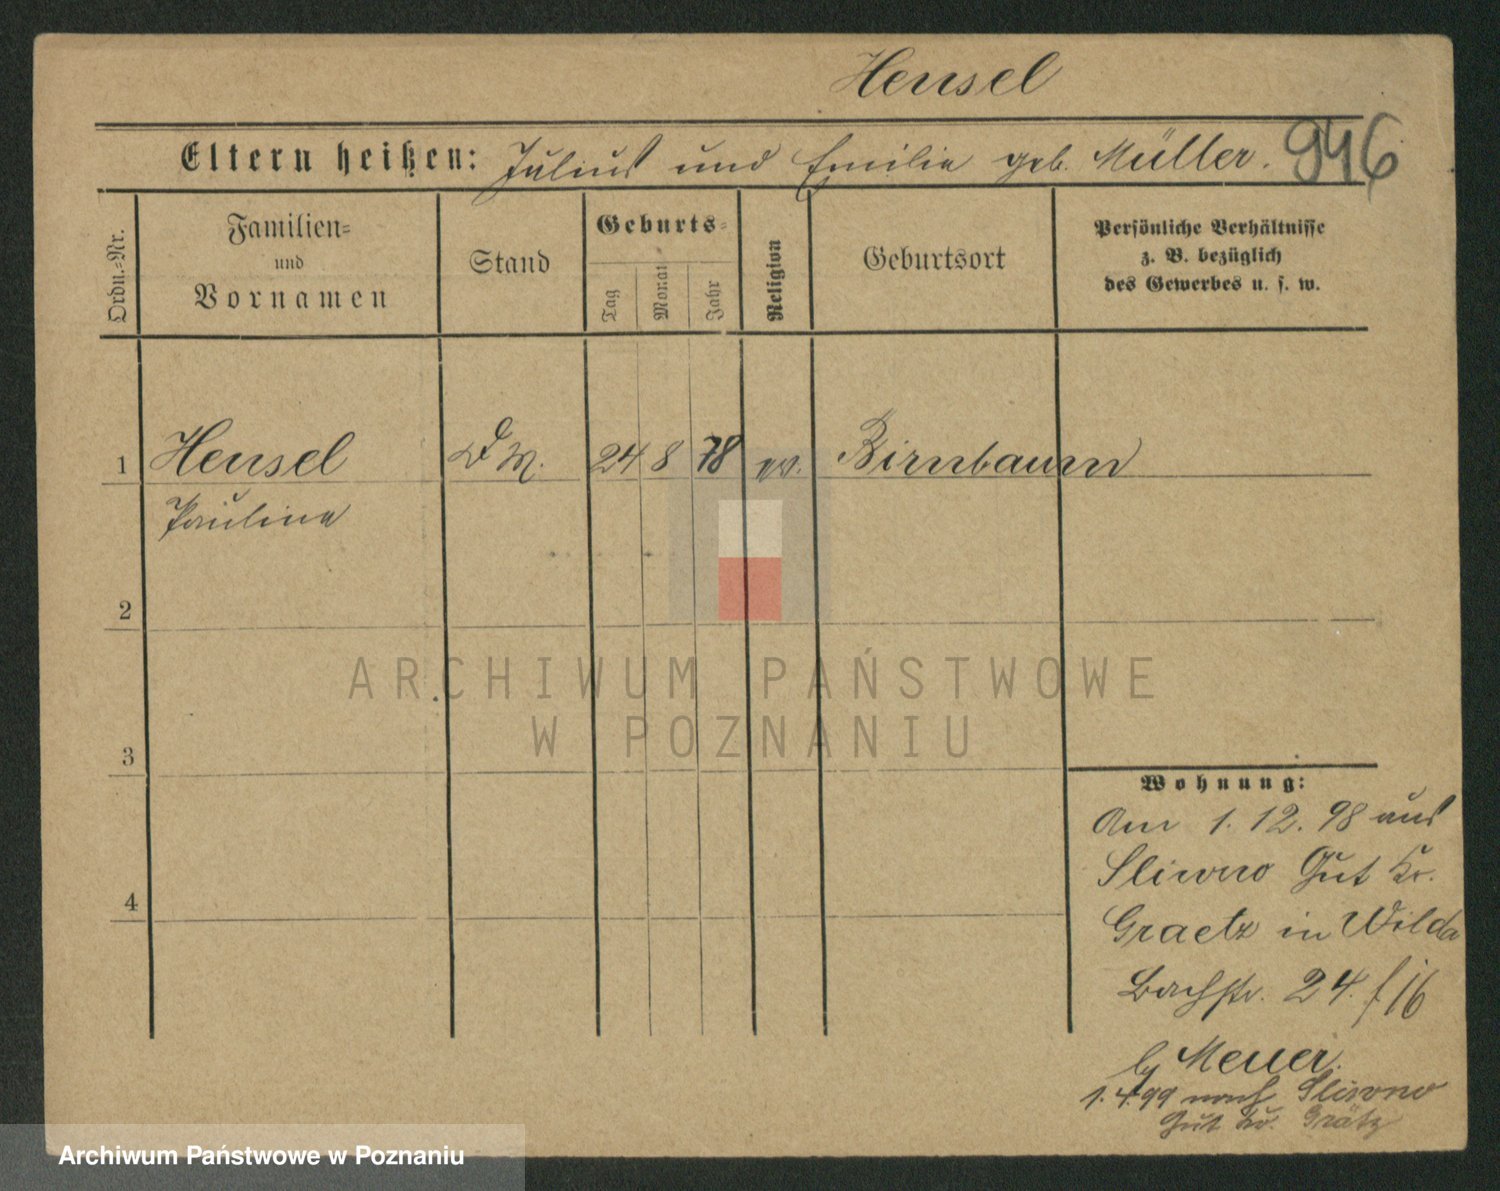 Hensel
Eltern heißen: Julius und Emilie geb. Müller. 946
Ordn.-Nr.
Familien-
und
Vornamen
Stand
Geburts-
Tag
Monat
Jahr
Religion
Geburtsort
Persönliche Verhältnisse
z. B. bezüglich
des Gewerbes u. s. w.
1 Hensel D M. 24 8 78 ev. Birnbaum
Pauline
2
3
4
Wohnung:
Am 1. 12. 98 aus
Sliwno Gut Kr.
Graetz in Wilda
Bachstr. 24
b/ Meuer.
1. 4. 99 nach Sliwno
Gut Kr. Grätz
ARCHIWUM PAŃSTWOWE
W POZNANIU
Archiwum Państwowe w Poznaniu